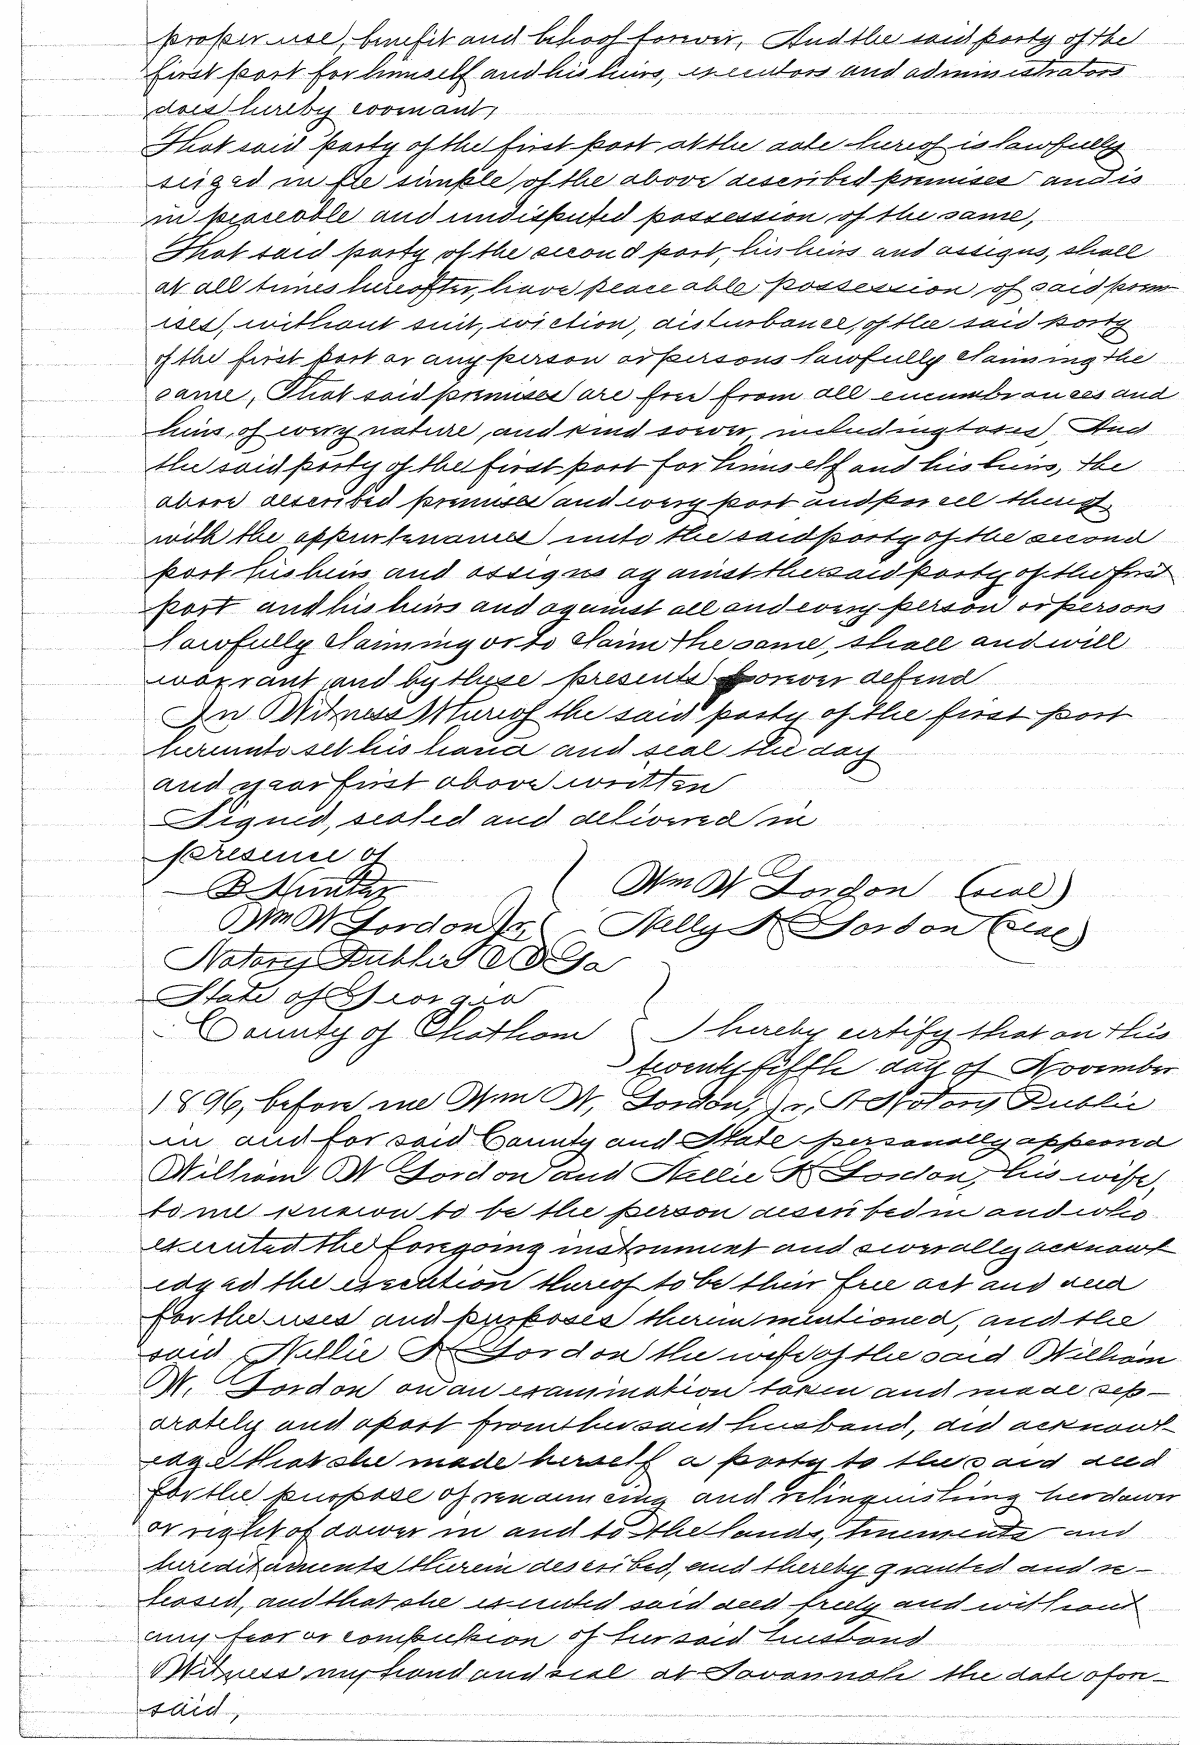 proper use, benefit and behoof forever, And the said party of the
first part for himself and his heirs, executors and administrators
does hereby covenant,
That said party of the first part at the date hereof is lawfully
seized in fee simple of the above described premises and is
in peaceable and undisputed possession of the same,
That said party of the second part, his heirs and assigns, shall
at all times hereafter, have peaceable possession of said prem
ises, without suit, eviction, disturbance, of the said party
of the first part or any person or persons lawfully claiming the
same, That said premises are free from all encumbrances and
liens, of every nature, and kind soever, including taxes, And
the said party of the first part for himself and his heirs, the
above described premises and every part and parcel thereof
with the appurtenances unto the said party of the second
part his heirs and assigns against the said party of the first
part and his heirs and against all and every person or persons
lawfully claiming or to claim the same, shall and will
warrant and by these presents forever defend
In Witness Whereof the said party of the first part
hereunto set his hand and seal the day
and year first above written
Signed, sealed and delivered in
presence of
B Hunter Wm W Gordon (seal)
Wm W Gordon Jr, Nelly K Gordon (seal)
Notary Public C C Ga
State of Georgia
County of Chatham I hereby certify that on this
twenty fifth day of November
1896, before me Wm W. Gordon, Jr, A Notary Public
in and for said County and State personally appeared
William W Gordon and Nellie K Gordon, his wife,
to me known to be the person described in and who
executed the foregoing instrument and severally acknowl
edged the execution thereof to be their free act and deed
for the uses and purposes therein mentioned, and the
said Nellie K Gordon the wife of the said William
W. Gordon on an examination taken and made sep-
arately and apart from her said husband, did acknowl-
edge that she made herself a party to the said deed
for the purpose of renouncing and relinquishing her dower
or right of dower in and to the lands, tenements and
hereditaments therein described, and thereby granted and re-
leased, and that she executed said deed freely and without
any fear or compulsion of her said husband
Witness my hand and seal at Savannah the date afore-
said,